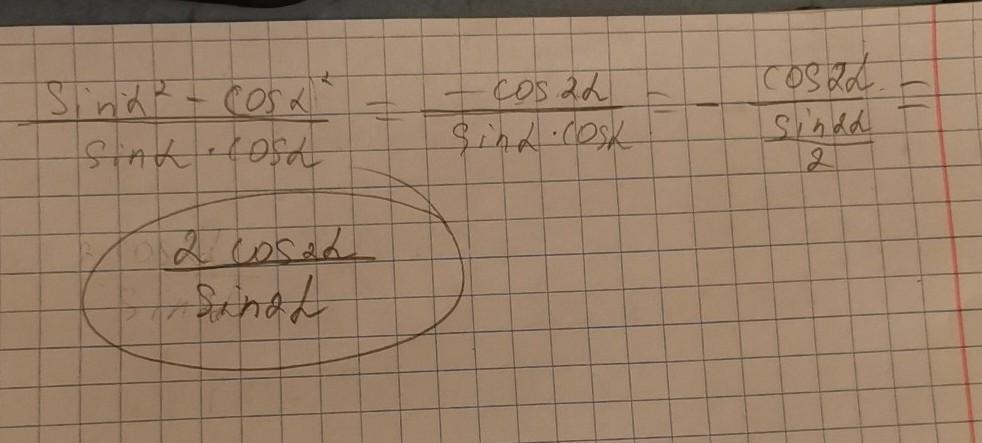 (Sinα² - cosα²)/(sinα · cosα) = (-cos2α)/(sinα · cosα) = - cos2α/(sin2α/2) =
2 cos2α/sin2α